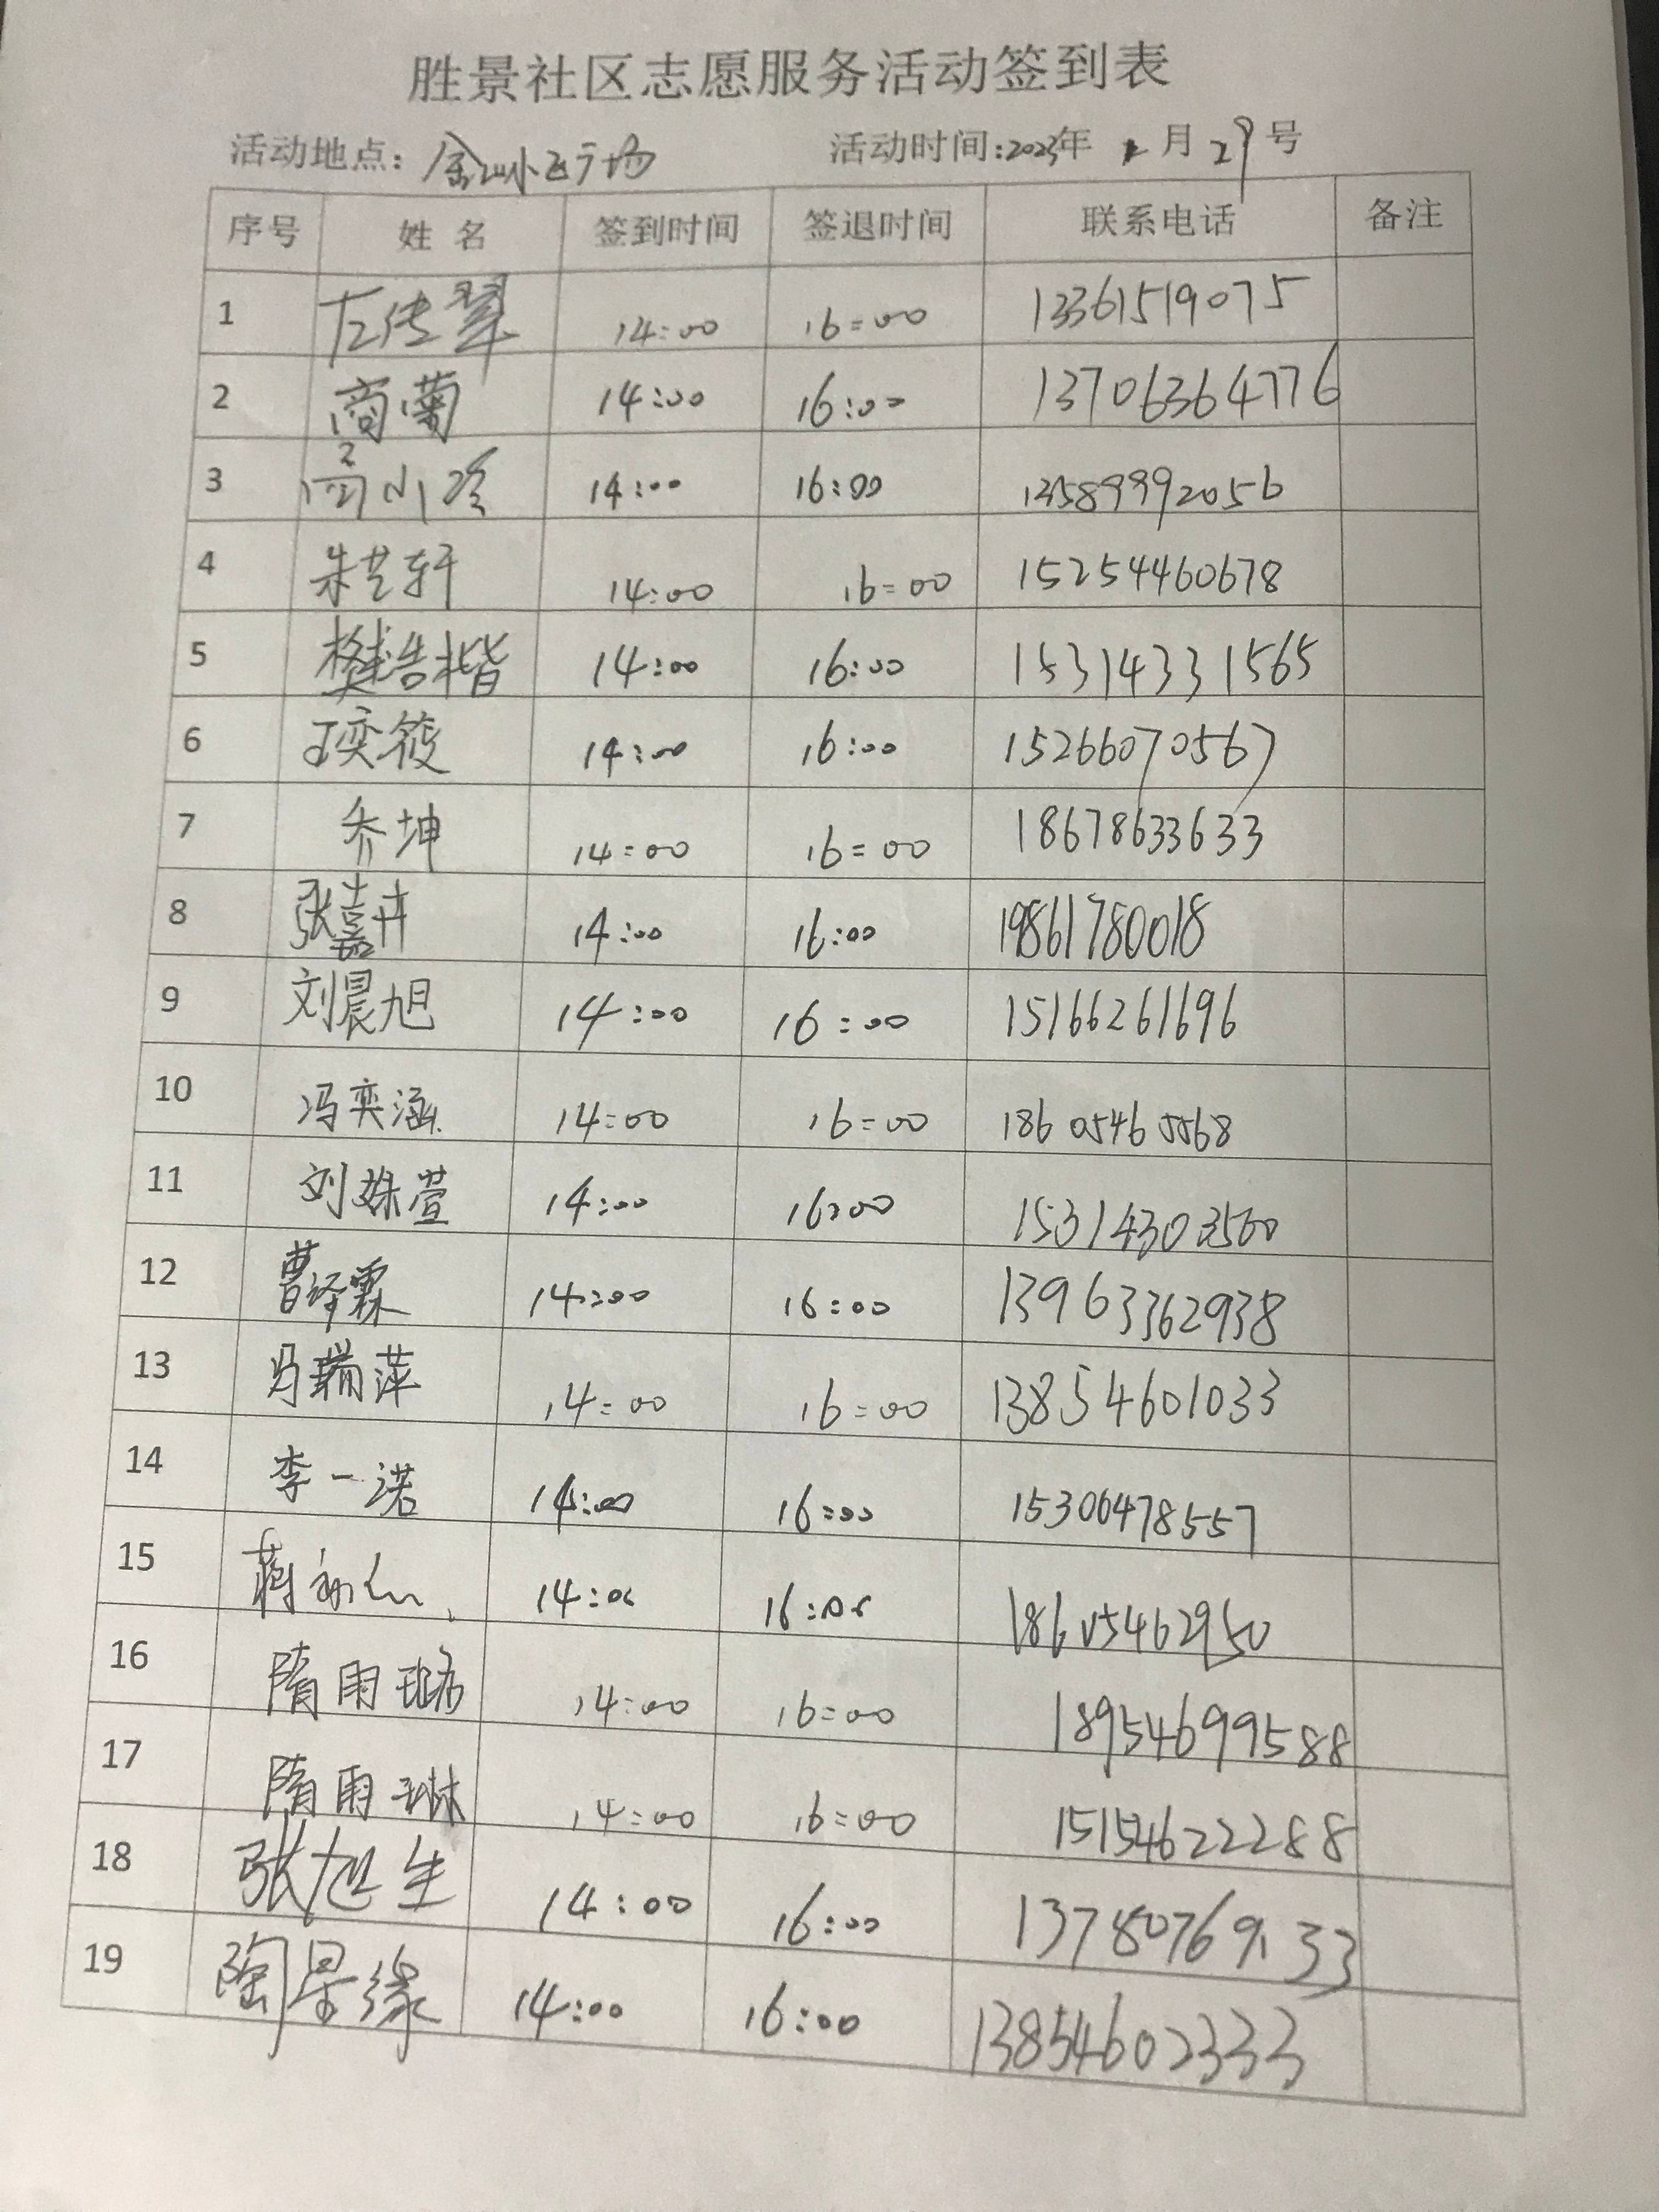 胜景社区志愿服务活动签到表
活动地点：金山小区广场 活动时间:2023年 月 29号
序号 姓名 签到时间 签退时间 联系电话 备注
1 左传翠 14:00 16:00 13361519075
2 商菊 14:00 16:00 13706364776
3 高小玲 14:00 16:00 13589992056
4 朱艺轩 14:00 16:00 15254460678
5 樊浩楷 14:00 16:00 15314331565
6 王奕筱 14:00 16:00 15266070567
7 乔坤 14:00 16:00 18678633633
8 张嘉卉 14:00 16:00 19861780018
9 刘晨旭 14:00 16:00 15166261696
10 冯奕涵 14:00 16:00 18605465568
11 刘姝萱 14:00 16:00 15314303560
12 曹译霖 14:00 16:00 13963362938
13 冯瑞萍 14:00 16:00 13854601033
14 李一诺 14:00 16:00 15306478557
15 蒋 14:00 16:00 18605462950
16 隋雨 14:00 16:00 18954699588
17 隋雨琳 14:00 16:00 15154622288
18 张旭生 14:00 16:00 13780769133
19 陶星缘 14:00 16:00 13854602333